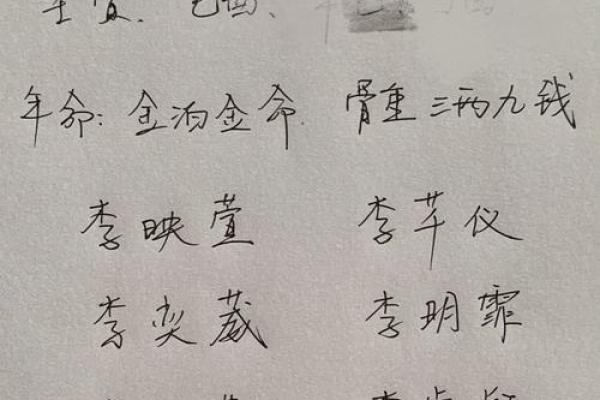 壬寅、己酉、
年命:金泊金命. 骨重三两九钱
李映萱 李芊仪
李奕葳 李明霏